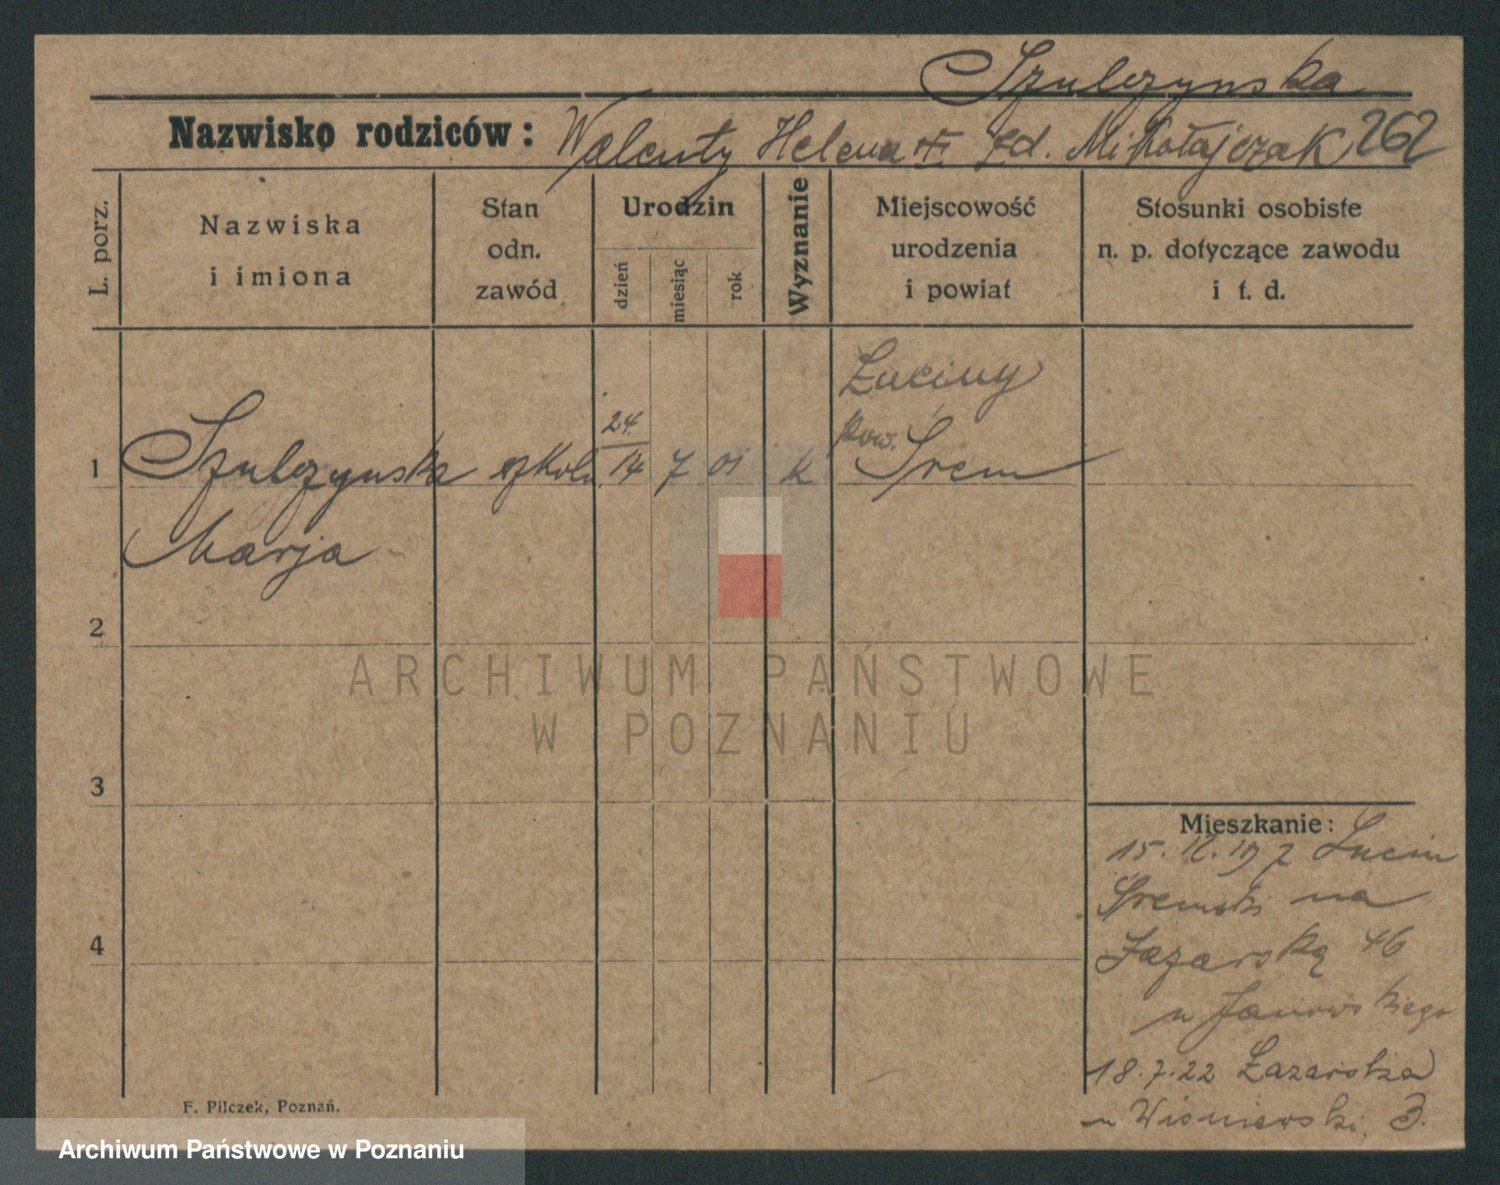 Szulczynska
Nazwisko rodziców: Walenty Helena zd. Mikołajczak 262
L. porz.
Nazwiska
i imiona
Stan
odn.
zawód
Urodzin
dzień
miesiąc
rok
Wyznanie
Miejscowość
urodzenia
i powiat
Stosunki osobiste
n. p. dotyczące zawodu
i t. d.
Łuciny
pow.
24.
1 Szulczynska szkoln. 14 7 01 k Śrem
Marja
2
ARCHIWUM PAŃSTWOWE
W POZNANIU
3
Mieszkanie:
15. 12. 19 z Lucin
Śremski na
4 Łazarską 46
u Janowskiego
18.7.22 Łazarska
u Wisniewski. 3.
F. Pilczek, Poznań.
Archiwum Państwowe w Poznaniu